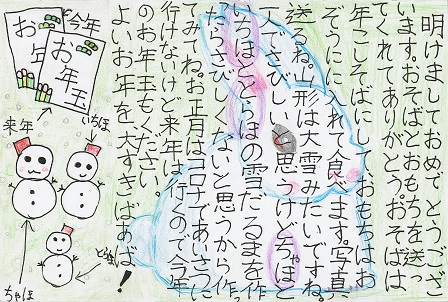 明けましておめでとうござ
います。おそばとおもちを送っ
てくれてありがとう。おそばは
年こしそばにして、おもちはお
ぞうにに入れて食べます。写真
送るね。山形は大雪みたいですね。
でさびしいと思うけどちゃほと
いちほととうほの雪だるまを作っ
たらさびしくないと思うから作っ
てみてね。お正月はコロナであいさつに
行けないけど来年は行くので今年
のお年玉もください。
よいお年を、大すきばあば!
今年
お年
お年玉
来年
いちほ
とうほ
ちゃほ